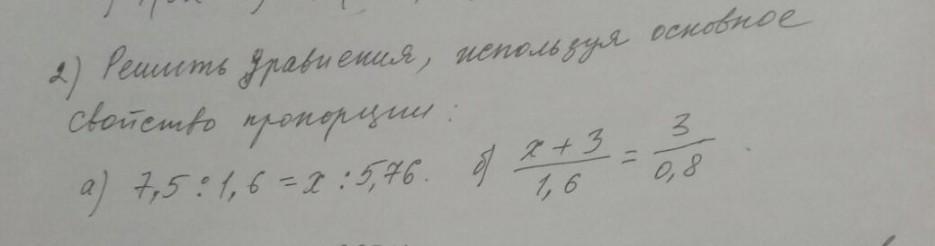 2) Решить уравнения, используя основное
свойство пропорции:
а) 7,5 : 1,6 = x : 5,76. б) \frac{x + 3}{1,6} = \frac{3}{0,8} .